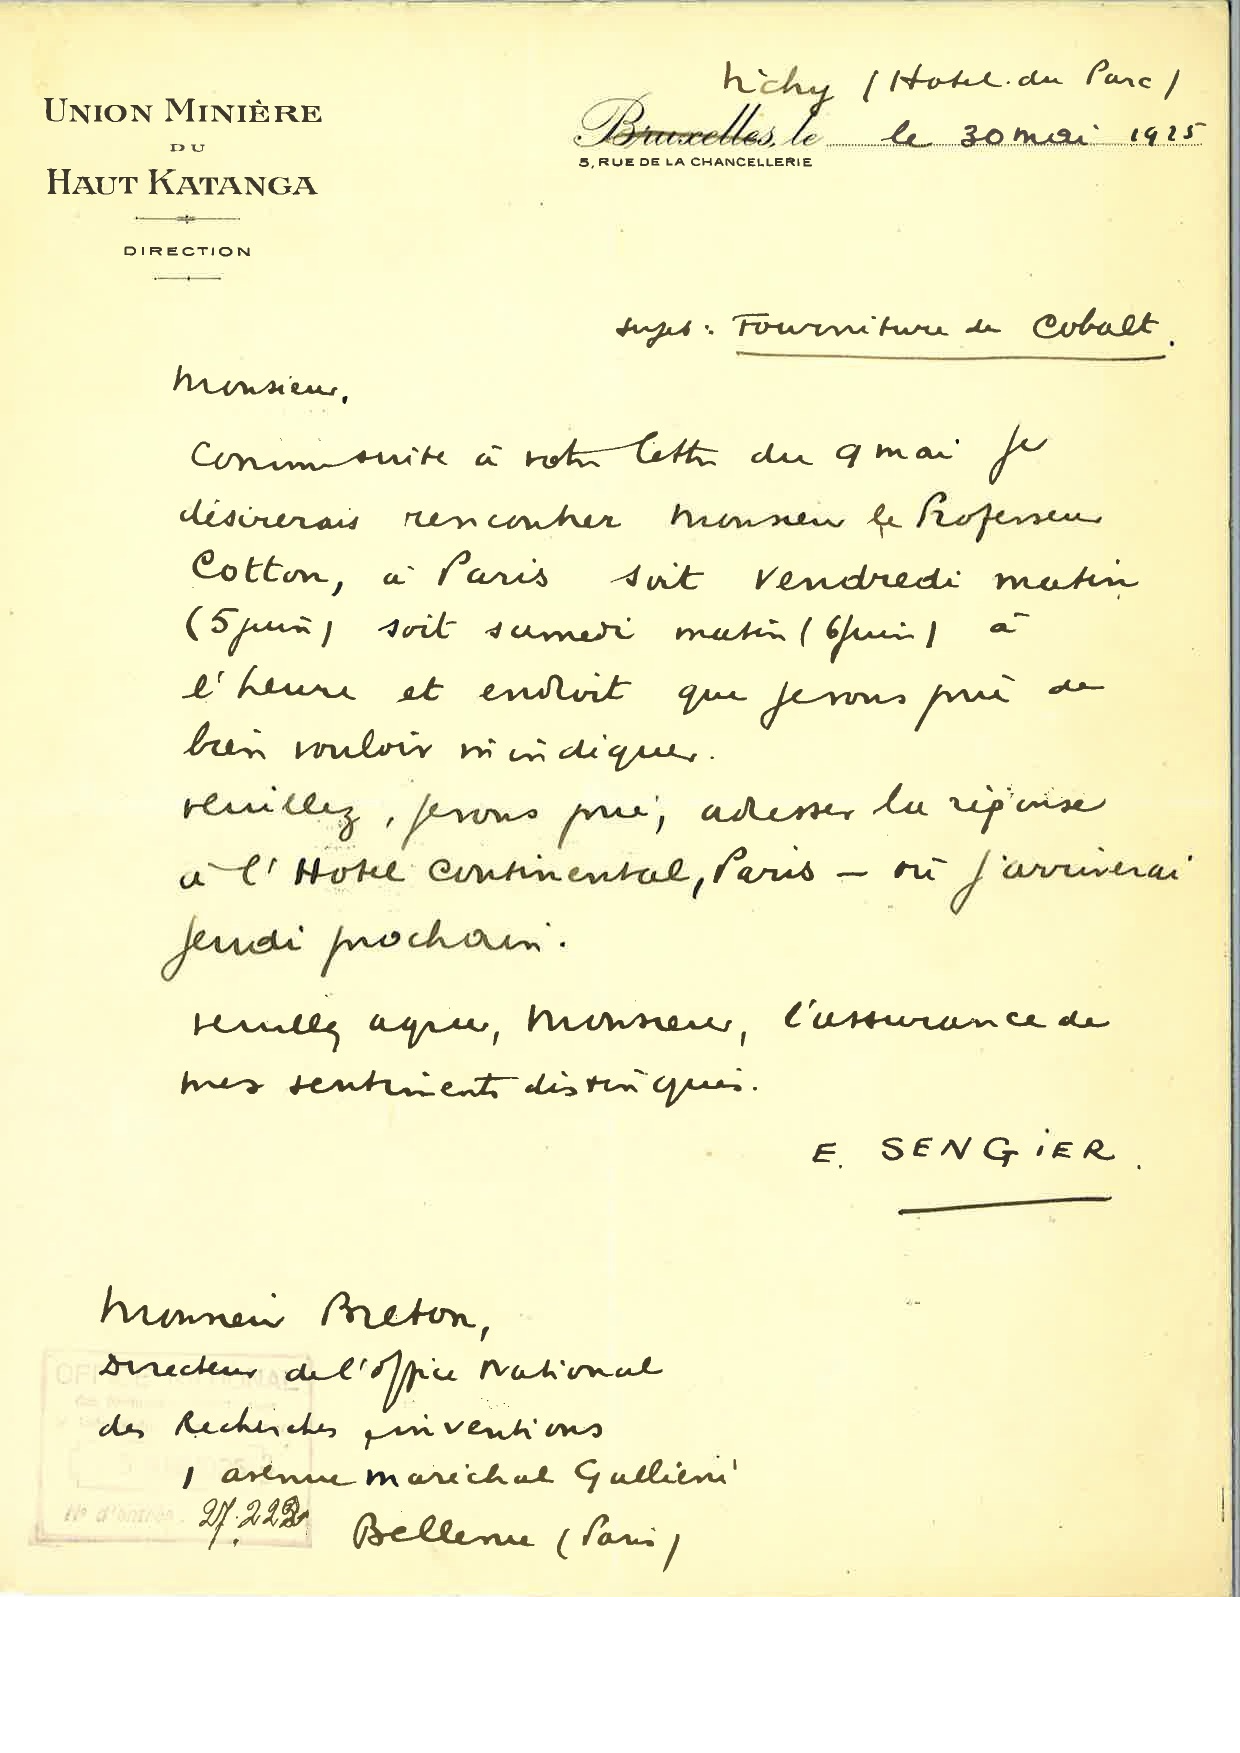 Vichy (Hotel du Parc)
UNION MINIÈRE
DU
HAUT KATANGA
DIRECTION
Bruxelles, le le 30 mai 1925
5, RUE DE LA CHANCELLERIE
Sujet : Fourniture de Cobalt.
Monsieur,
Comme suite à votre lettre du 9 mai je
désirerais rencontrer Monsieur le Professeur
Cotton, à Paris soit vendredi matin
(5 juin) soit samedi matin (6 juin) à
l'heure et endroit que je vous prie de
bien vouloir m'indiquer.
Veuillez, je vous prie, adresser la réponse
à l'Hotel Continental, Paris — où j'arriverai
jeudi prochain.
Veuillez agréer, Monsieur, l'assurance de
mes sentiments distingués.
E. SENGIER.
Monsieur Breton,
Directeur de l'Office National
des Recherches inventions
1 avenue maréchal Gallieni
Bellevue (Paris)
OFFICE NATIONAL
N° d'entrée. 27.222